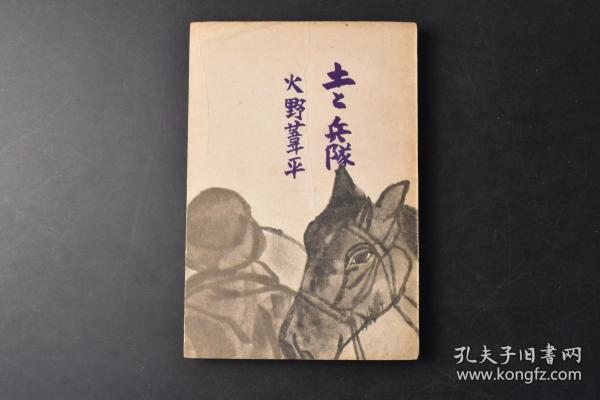 土と兵隊
火野葦平
孔夫子旧書网
www.kongfz.com